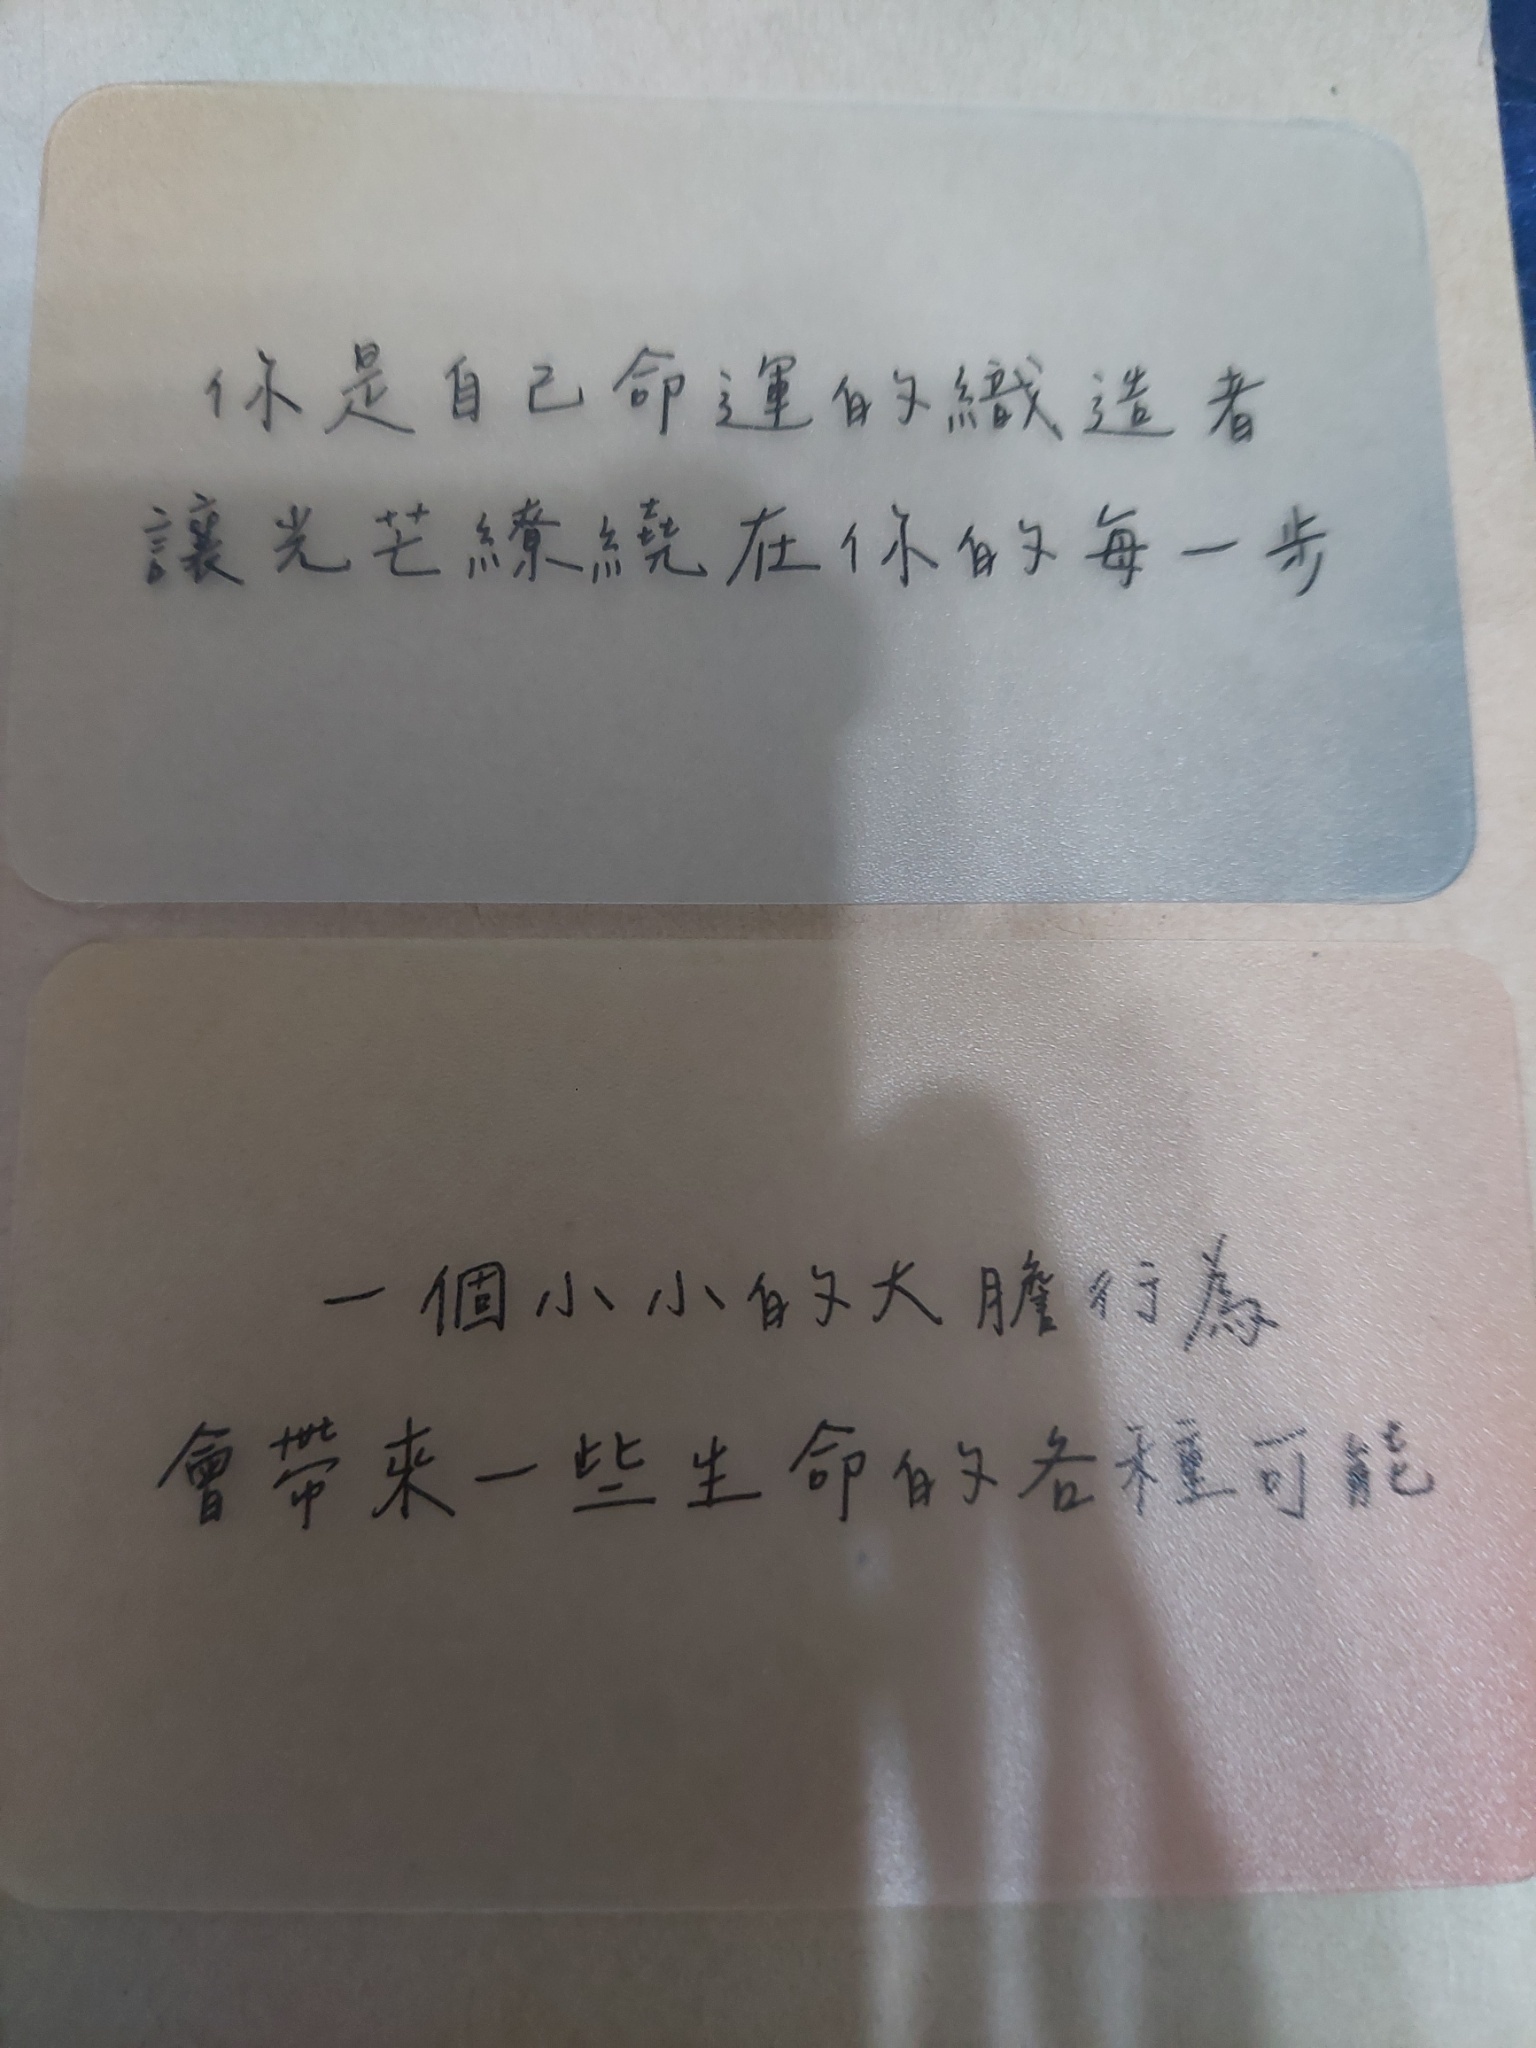 你是自己命運的織造者
讓光芒繚繞在你的每一步
一個小小的大膽行為
會帶來一些生命的各種可能